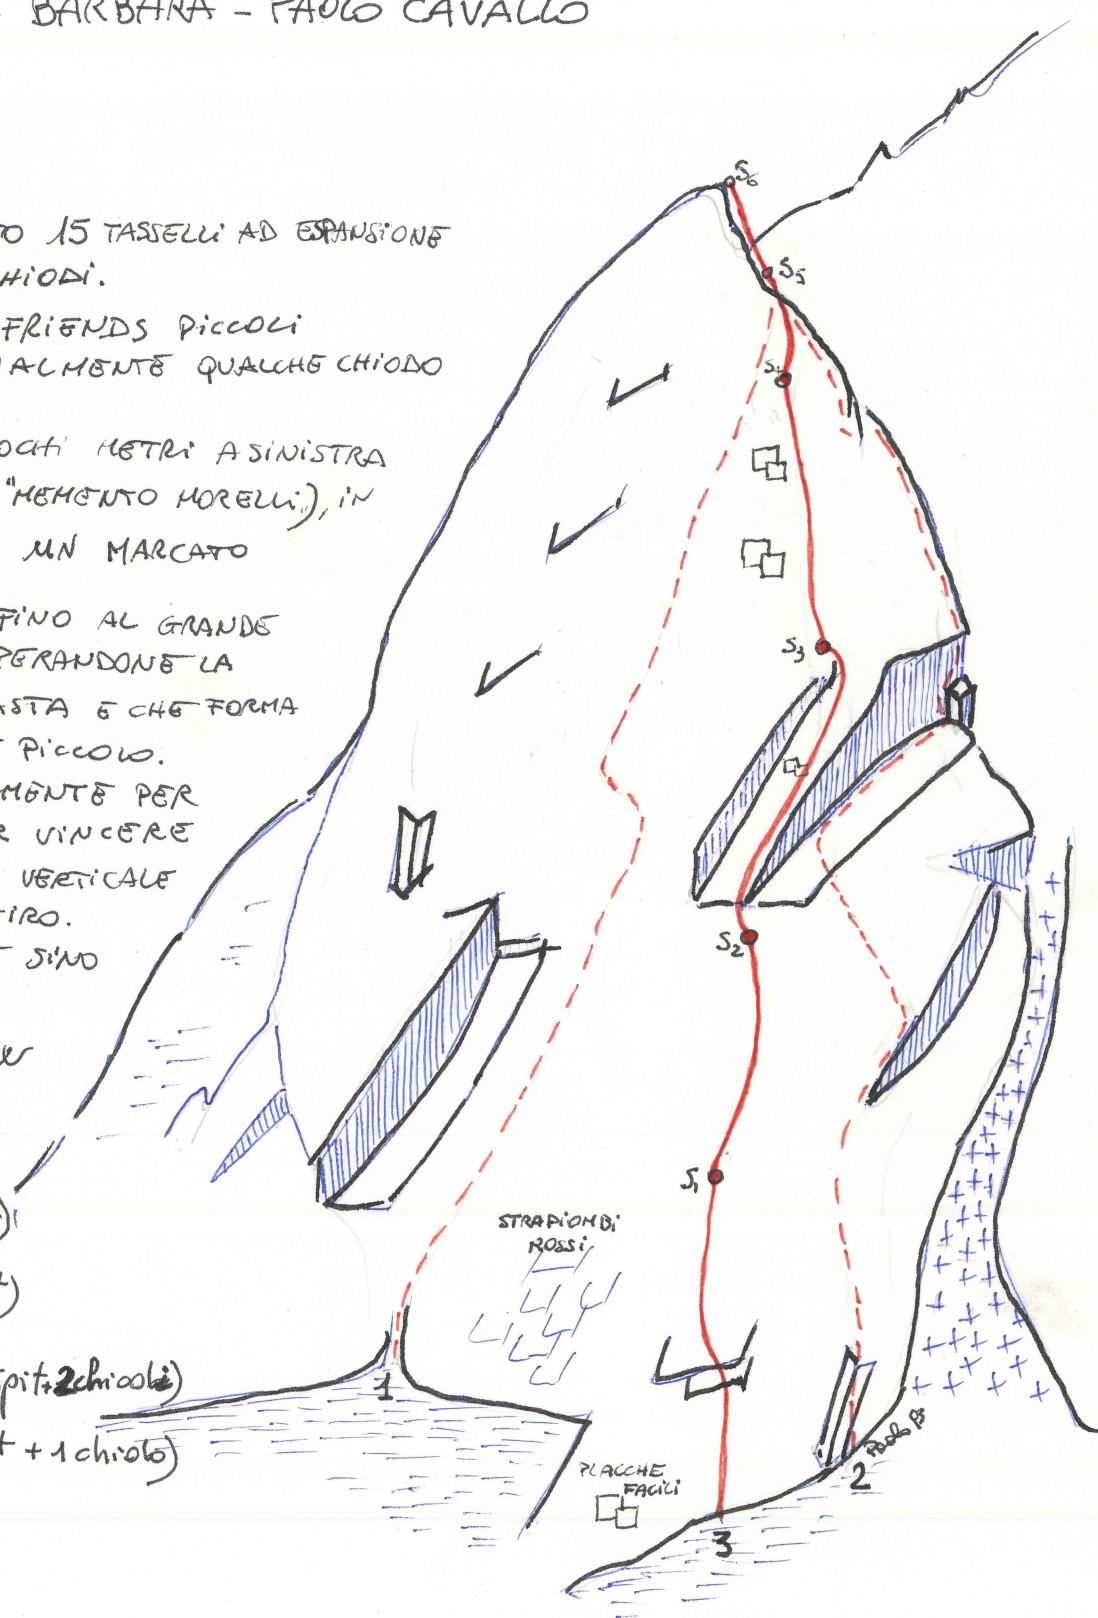 BARBARA - PAOLO CAVALLO
TO 15 TASSELLI AD ESPANSIONE
HIODI.
FRIENDS PICCOLI
ALMENTE QUALCHE CHIODO
OCHI METRI A SINISTRA
"MEMENTO MORELLI), IN
UN MARCATO
FINO AL GRANDE
PERANDONE LA
ASTA E CHE FORMA
PICCOLO.
MENTE PER
R VINCERE
VERTICALE
TIRO.
SINO
pit+2chiodi)
t + 1 chiodo)
S6
S5
S4
S3
S2
S1
STRAPIOMBI
ROSSI
1
PLACCHE
FACILI
Paolo
2
3